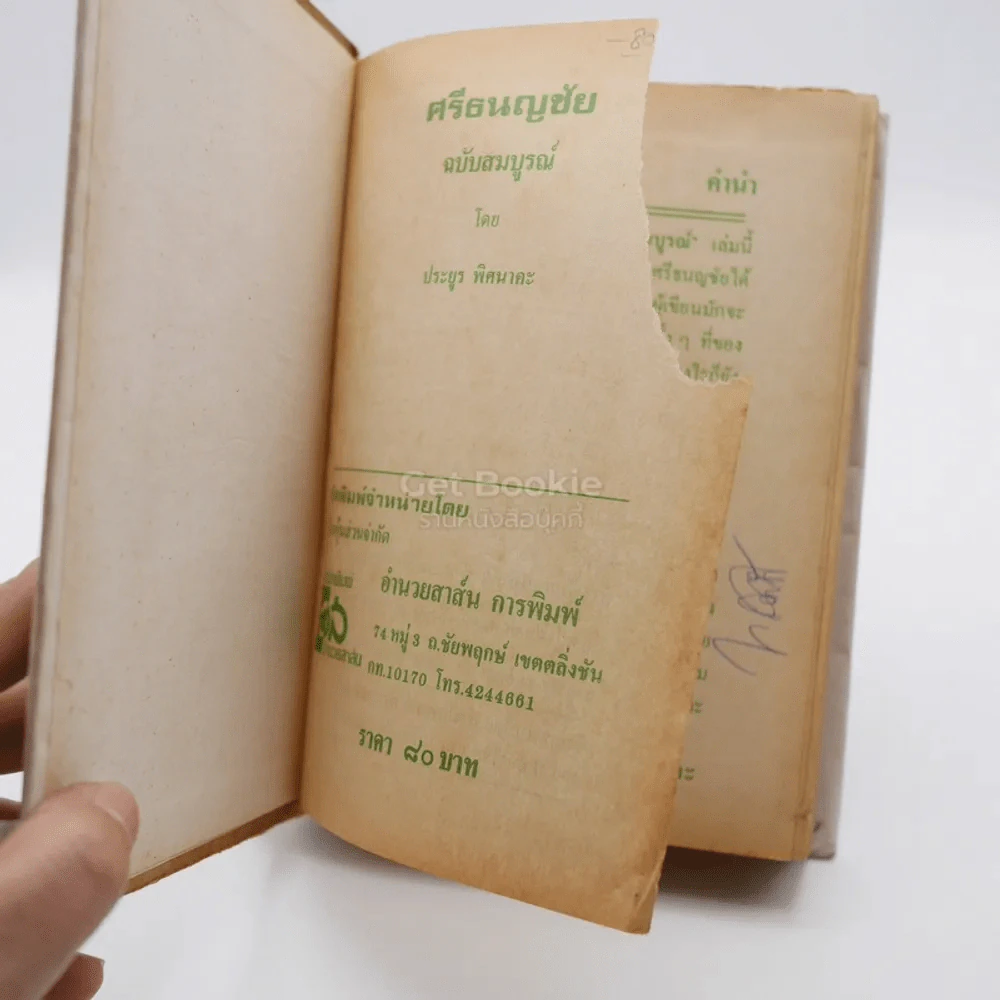 -80
ศรีธนญชัย
ฉบับสมบูรณ์
โดย
ประยูร พิศนาคะ
พิมพ์จำหน่ายโดย
หุ้นส่วนจำกัด
อำนวยสาส์น การพิมพ์
74 หมู่ 3 ถ.ชัยพฤกษ์ เขตตลิ่งชัน
กท.10170 โทร.4244661
ราคา ๘๐ บาท
Get Bookie
ร้านหนังสือบุคกี้
คำนำ
บูรณ์" เล่มนี้
ศรีธนญชัยได้
ผู้เขียนมักจะ
ๆ ที่ของ